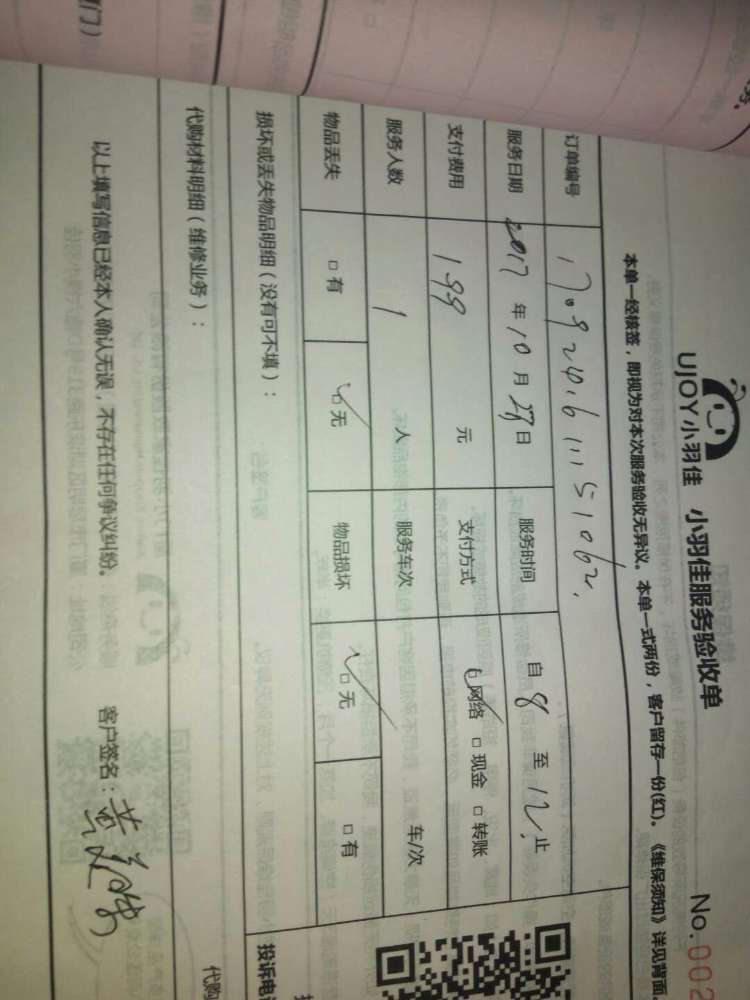 UJOY小羽佳 小羽佳服务验收单 No.002
本单一经核签，即视为对本次服务验收无异议。本单一式两份，客户留存一份(红)。《维保须知》详见背面
订单编号
服务日期 2017 年 10 月 28 日 服务时间 自 8 至 12 止
支付费用 199 元 支付方式 网络 □ 现金 □ 转账
服务人数 1 人 服务车次 车/次
物品丢失 □ 有 □ 无 物品损坏 □ 无 □ 有
损坏或丢失物品明细（没有可不填）： 投诉电
代购材料明细（维修业务）： 代购
以上填写信息已经本人确认无误，不存在任何争议纠纷。 客户签名：